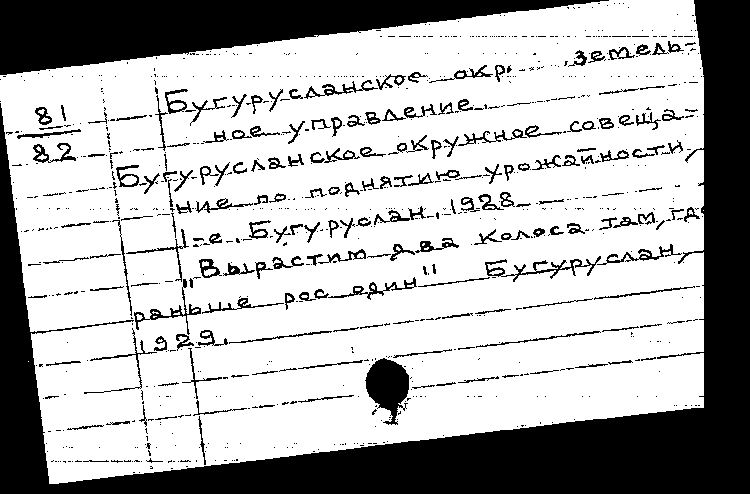 81
82
Бугурусланское окр. земель-
ное управление.
Бугурусланское окружное совеща-
ние по поднятию урожайности,
1-е, Бугуруслан, 1928
„Вырастим два колоса там, где
раньше рос один" Бугуруслан,
1929.